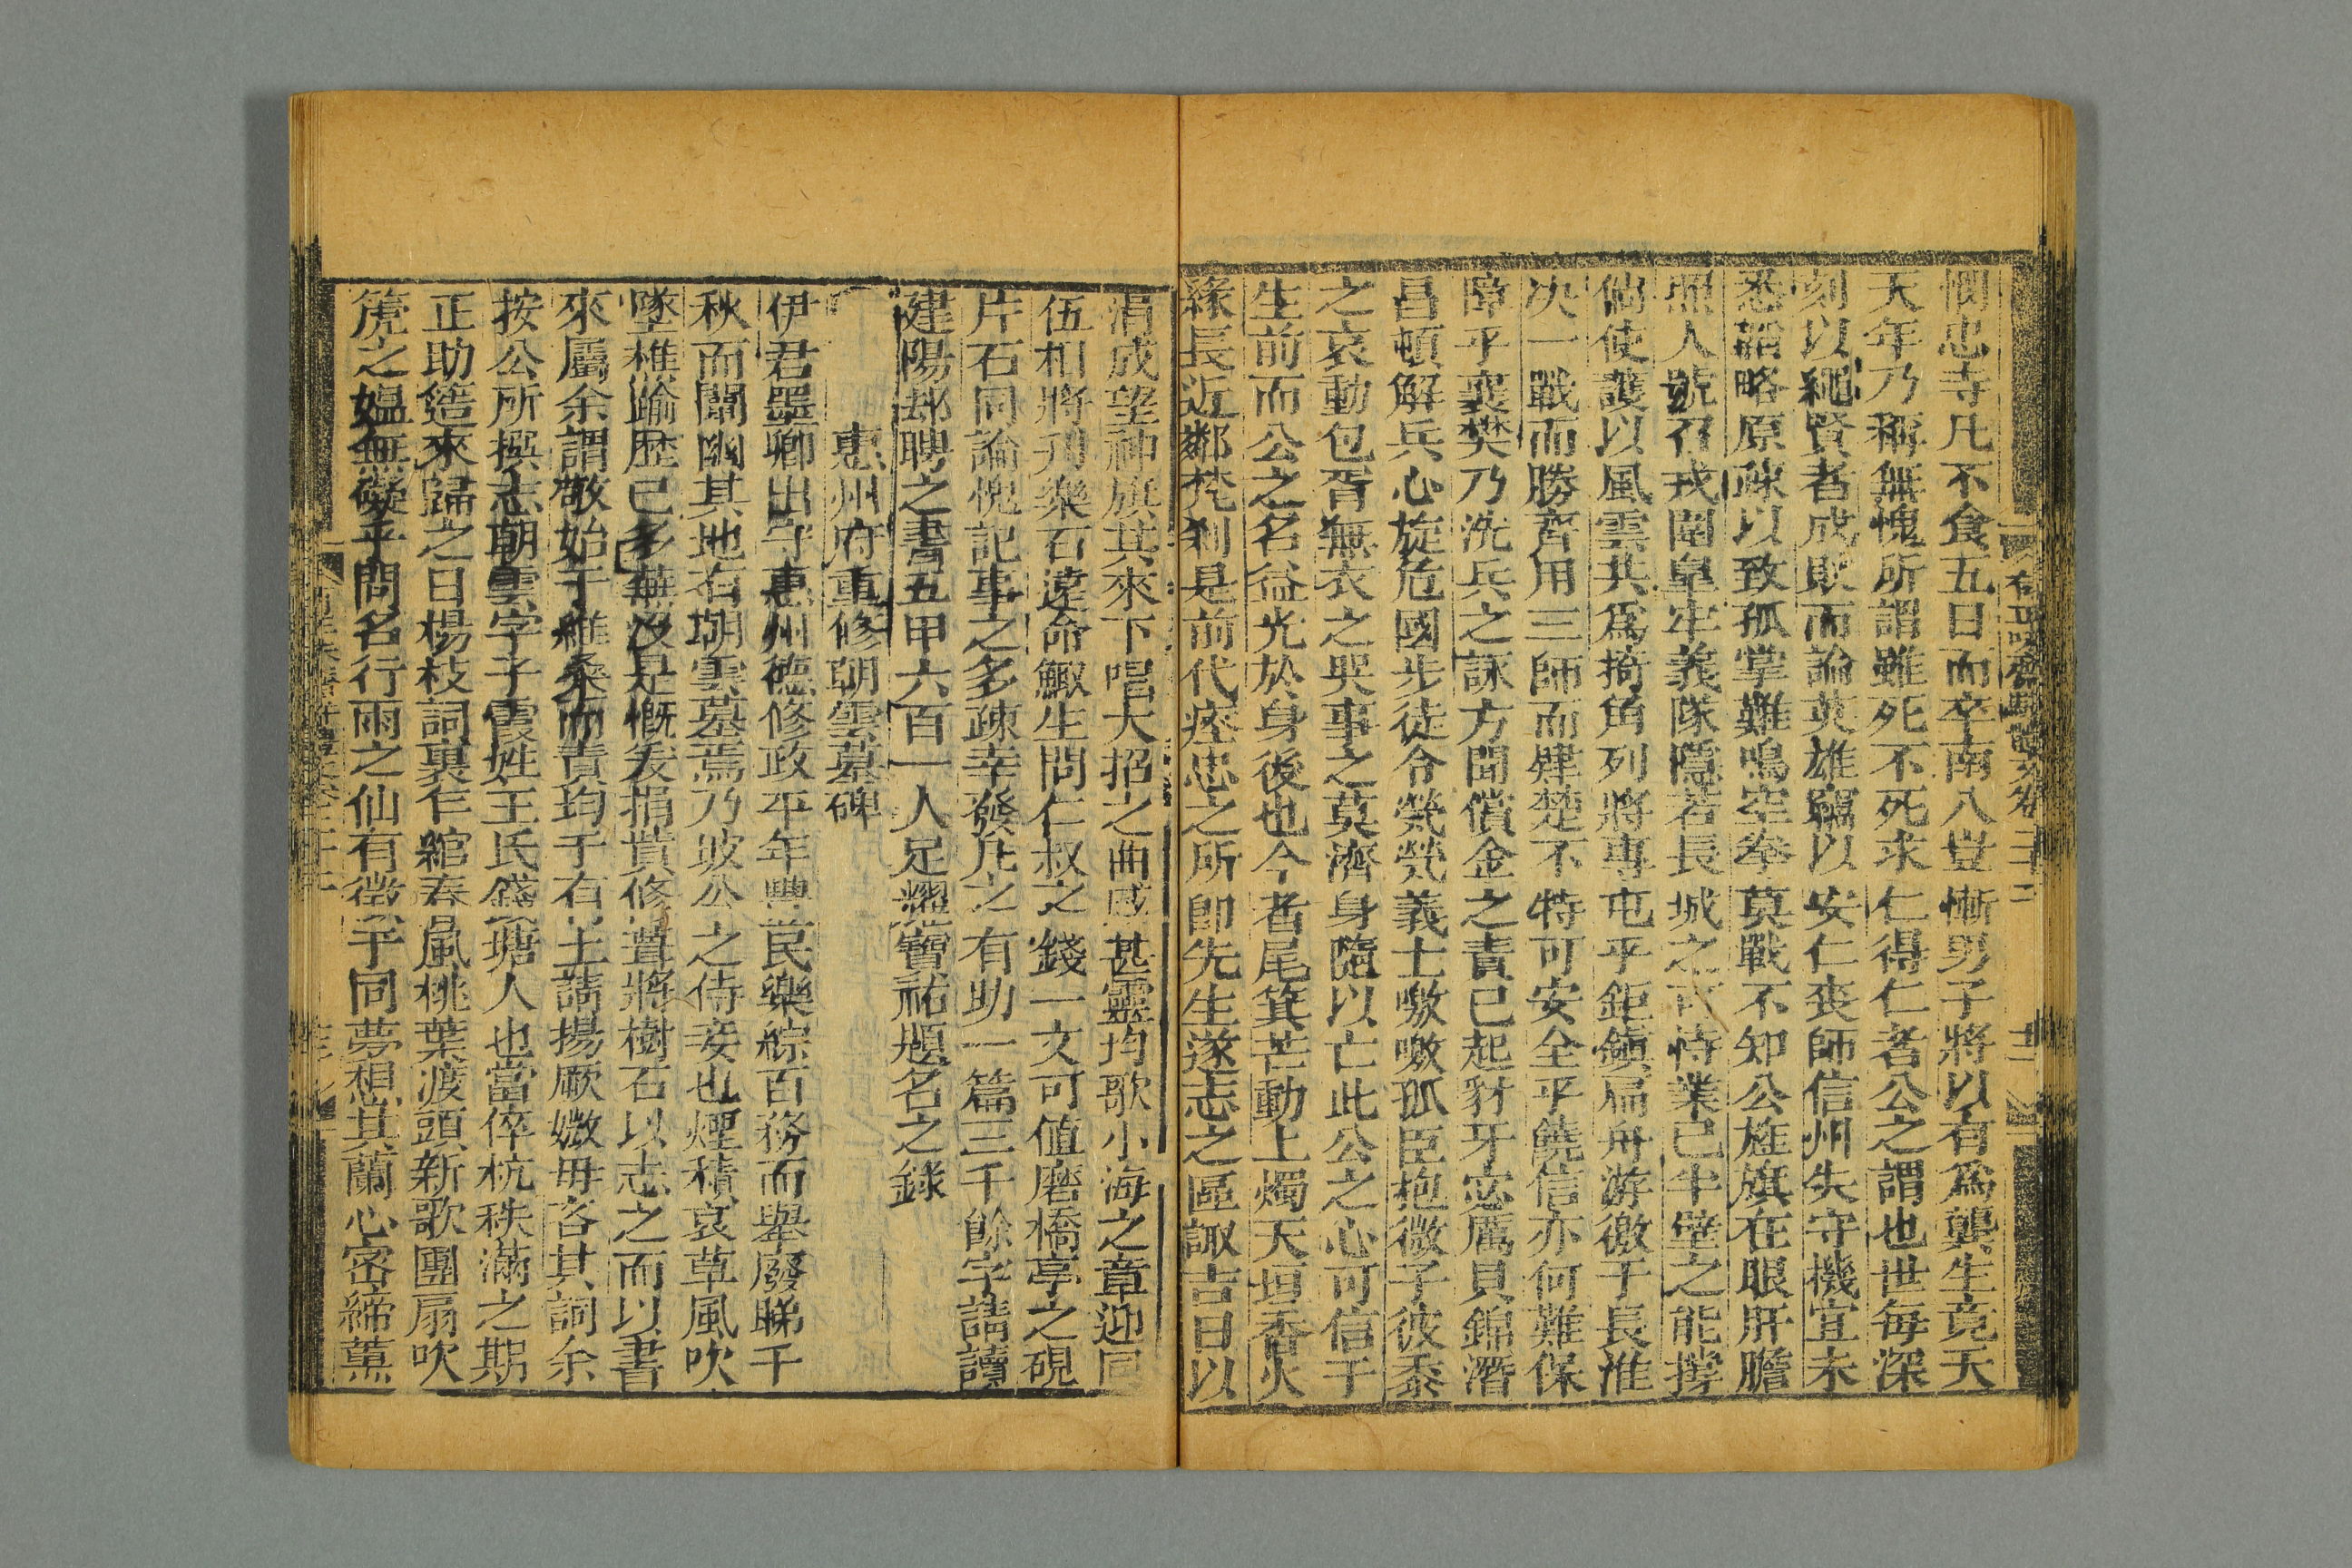 憫忠寺凡不食五日而卒南八豈慚男子將以有爲龔生竟夭
天年乃稱無愧所謂雖死不死求仁得仁者公之謂也世每深
刻以繩賢者成敗而論英雄竊以安仁喪師信州失守機宜未
悉謂略原疎以致孤掌難鳴空拳莫戰不知公旌旗在眼肝膽
照人號召戎閫皐牢義隊隱若長城之可恃業已半壁之能撐
倘使護以風雲共爲掎角列將專屯乎鉅鎭扁舟游徼于長淮
決一戰而勝齊用三師而肄楚不特可安全乎饒信亦何難保
障乎襄樊乃洗兵之詠方聞償金之責已起豺牙宓厲貝錦潛
昌頓解兵心旋危國步徒令煢煢義士嗷嗷孤臣抱微子彼黍
之哀動包胥無衣之哭事之莫濟身隨以亡此公之心可信于
生前而公之名益光於身後也今者尾箕芒動上燭天垣香火
緣長近鄰梵刹是前代瘞忠之所卽先生遂志之區諏吉日以
涓成望神旗其來下唱大招之曲感甚靈均歌小海之章迎同
伍相將刋樂石遠命鯫生問仁叔之錢一文可値磨橋亭之硯
片石同論愧記事之多疎幸發凡之有助一篇三千餘字請讀
建陽却聘之書五甲六百一人足耀寶祐題名之錄
惠州府重修朝雲墓碑
伊君墨卿出守惠州德修政平年豐民樂綜百務而舉廢睇千
秋而闡幽其地有朝雲墓焉乃坡公之侍妾也煙積哀草風吹
墜樵踰歴已多蕪沒是慨爰捐貲修葺將樹石以志之而以書
來屬余謂敬始于維桑而責均于有土請揚厥媺毋吝其詞余
按公所撰志朝雲字子霞姓王氏錢塘人也當倅杭秩滿之期
正助簉來歸之日楊枝詞裏乍綰春風桃葉渡頭新歌團扇吹
篪之媼無礙乎問名行雨之仙有徵乎同夢想其蘭心密締蕙